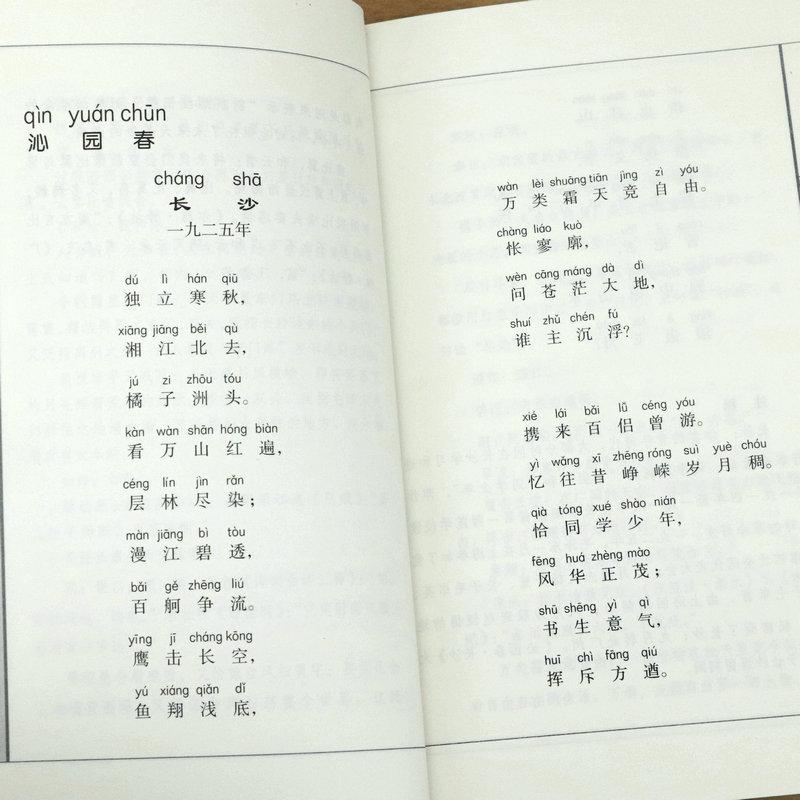 qìn yuán chūn
沁园春
cháng shā
长沙
一九二五年
dú lì hán qiū
独立寒秋，
xiāng jiāng běi qù
湘江北去，
jú zi zhōu tóu
橘子洲头。
kàn wàn shān hóng biàn
看万山红遍，
céng lín jìn rǎn
层林尽染；
màn jiāng bì tòu
漫江碧透，
bǎi gě zhēng liú
百舸争流。
yīng jī cháng kōng
鹰击长空，
yú xiáng qiǎn dǐ
鱼翔浅底，
wàn lèi shuāng tiān jìng zì yóu
万类霜天竞自由。
chàng liáo kuò
怅寥廓，
wèn cāng máng dà dì
问苍茫大地，
shuí zhǔ chén fú
谁主沉浮？
xié lái bǎi lǚ céng yóu
携来百侣曾游。
yì wǎng xī zhēng róng suì yuè chóu
忆往昔峥嵘岁月稠。
qià tóng xué shào nián
恰同学少年，
fēng huá zhèng mào
风华正茂；
shū shēng yì qì
书生意气，
huī chì fāng qiú
挥斥方遒。